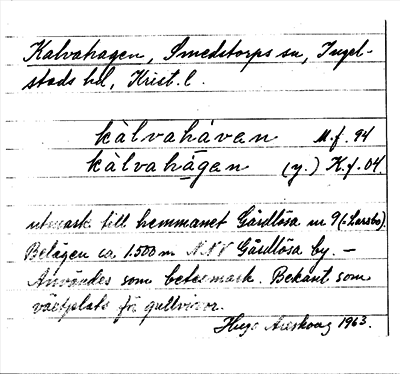 Kalvahagen, Smedstorps sn, Ingel-
stads hd, Krist. l.
kàlvahåvan M.f. 94
kàlvahågen (y.) K.f. 04.
utmark till hemmanet Gårdlösa nr 9 (: Larsbo).
Belägen ca 1.500 m NNV Gårdlösa by. –
Användes som betesmark. Bekant som
växtplats för gullvivor.
Hugo Areskoug 1963.